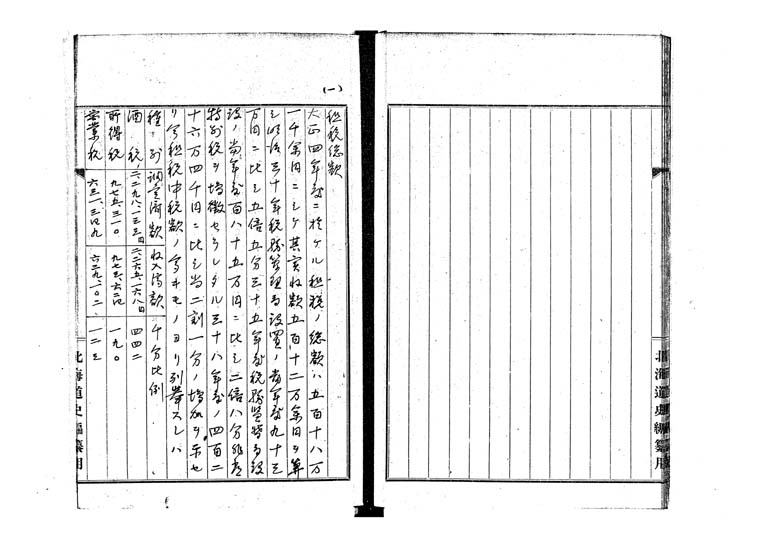 北海道史編纂用
(一)
租税総額
大正四年度ニ於ケル租税ノ総額ハ五百十八万
一千余円ニシテ其実収額五百十二万余円ヲ算
シ明治三十年税務管理局設置ノ当年度九十三
万円ニ比シ五倍五分三十五年度税務監督局設
設ノ当年度百八十五万円ニ比シ二倍八分
特別税ヲ増徴セラレタル三十八年度ノ四百二
十六万四千円ニ比シ尚二割一分ノ増加ヲ示セ
リ今租税中税額ノ多キモノヨリ列挙スレハ
種別 調定済額 収入済額 千分比例
酒税 二、二九八、一三三円 二、二六五、一六八円 四四二
所得税 九七五、三一〇 九七三、六二四 一九〇
営業税 六三一、三四九 六二九、一〇二 一二三
北海道史編纂用